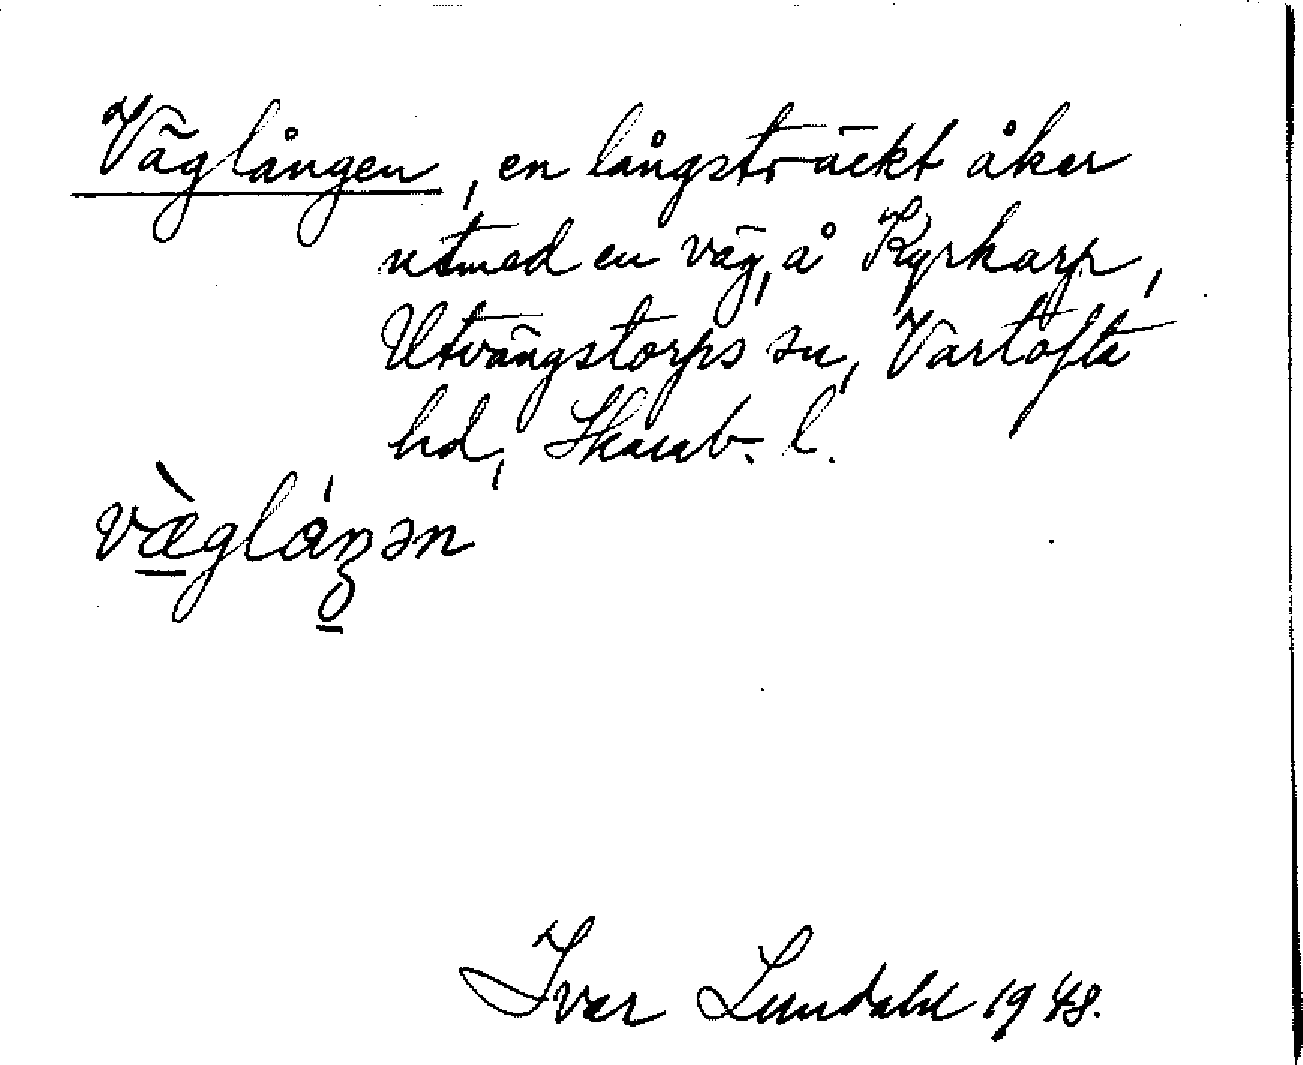 Väglången, en långsträckt åker
utmed en väg, å Kyrkarp,
Utvängstorps sn, Vartofta
hd, Skarab. l.
væ̀glåŋən
Ivar Lundahl 1948.